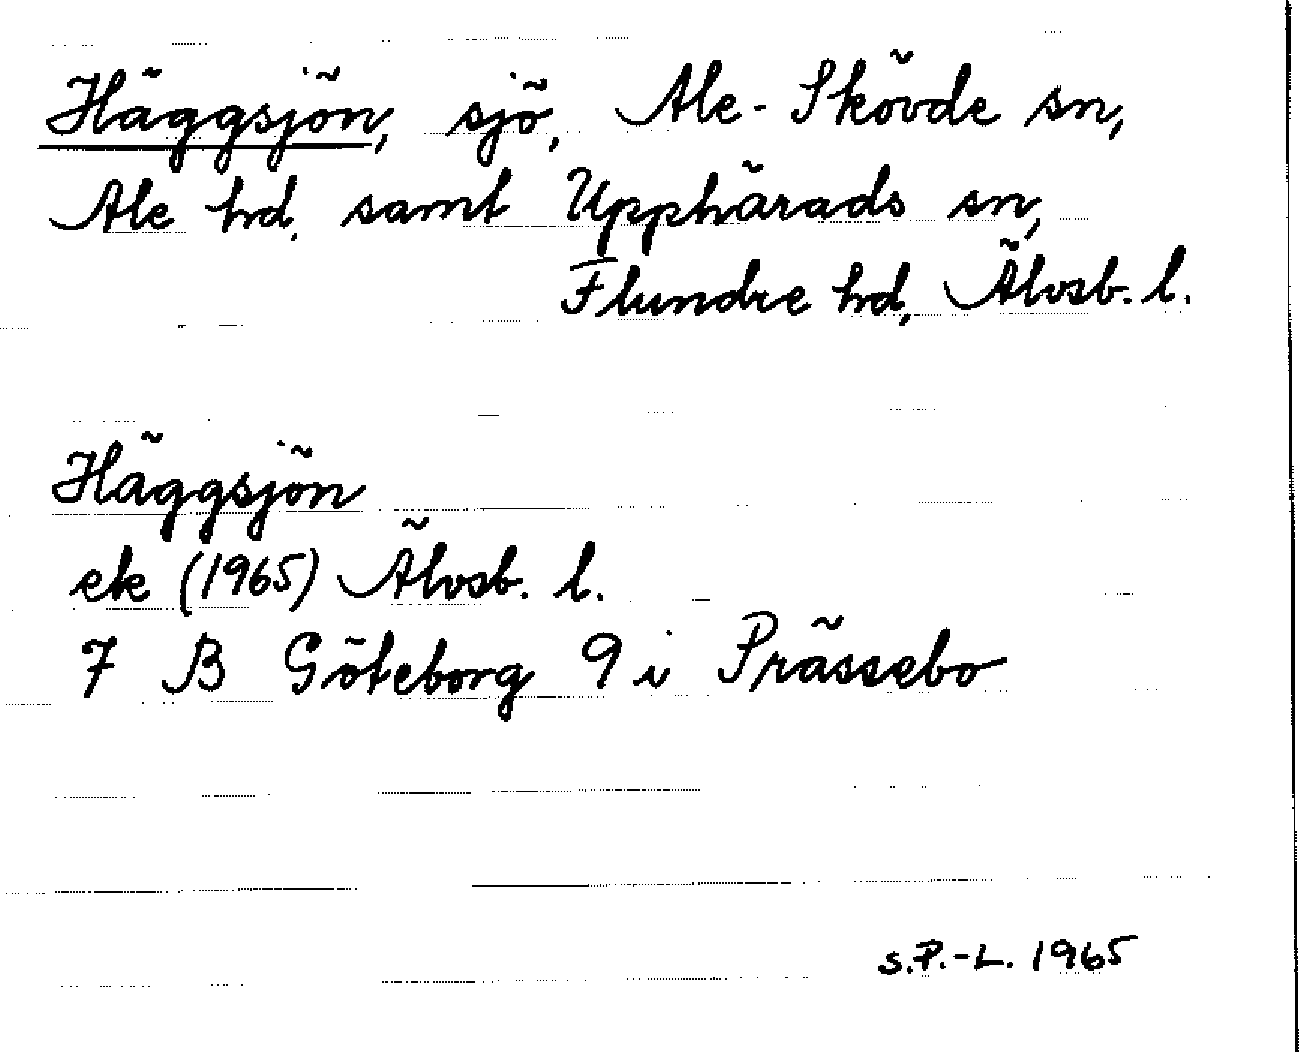 Häggsjön, sjö, Ale-Skövde sn,
Ale hd, samt Upphärads sn,
Flundre hd, Älvsb. l.
Häggsjön
ek (1965) Älvsb. l.
7 B Göteborg 9 i Prässebo
S.P.-L. 1965